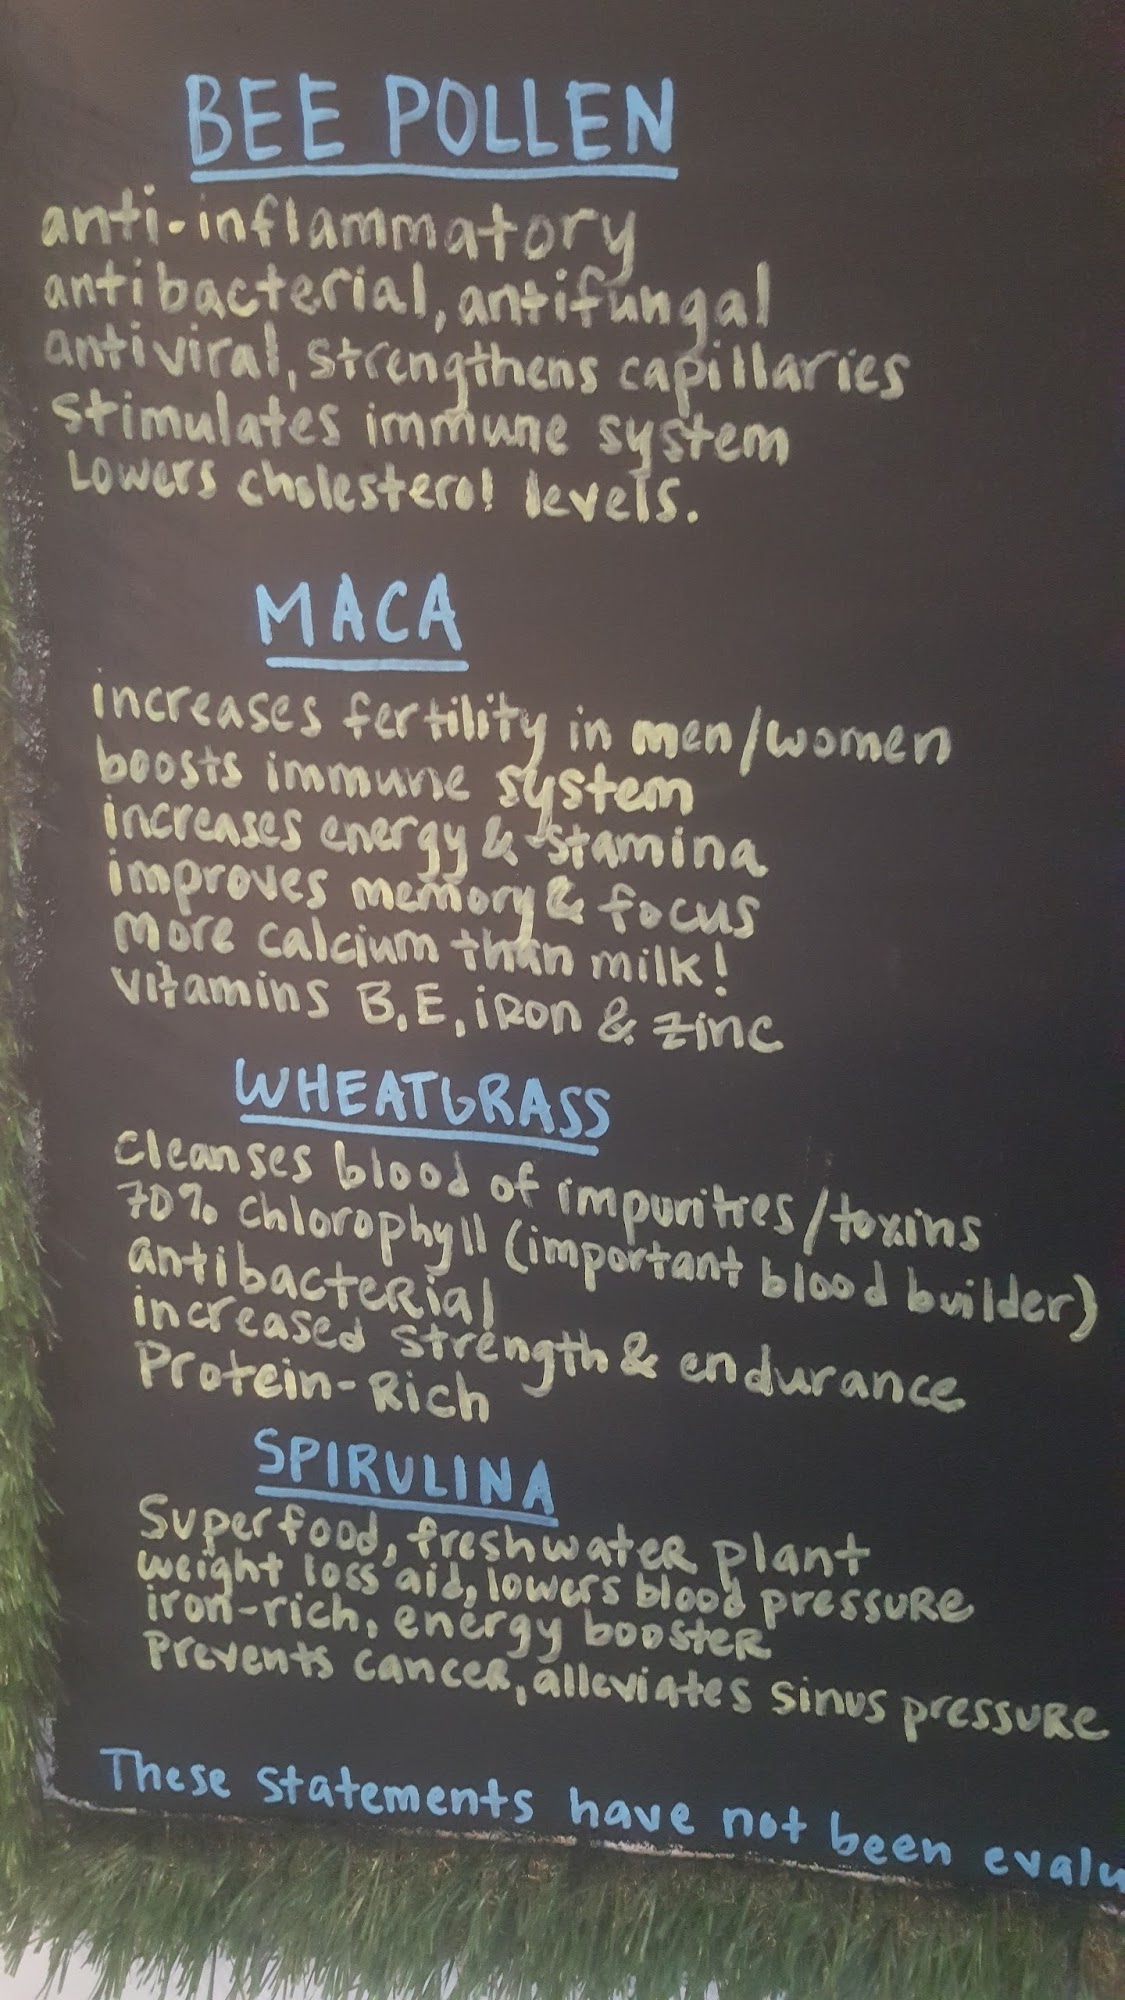 BEE POLLEN
anti-inflammatory
antibacterial, antifungal
antiviral, strengthens capillaries
stimulates immune system
Lowers cholesterol levels.
MACA
increases fertility in men/women
boosts immune system
increases energy & stamina
improves memory & focus
more calcium than milk!
vitamins B, E, iron & zinc
WHEATGRASS
cleanses blood of impurities/toxins
70% chlorophyll (important blood builder)
antibacterial
increased strength & endurance
Protein-Rich
SPIRULINA
Superfood, freshwater plant
weight loss aid, lowers blood pressure
iron-rich, energy booster
prevents cancer, alleviates sinus pressure
These statements have not been evalu